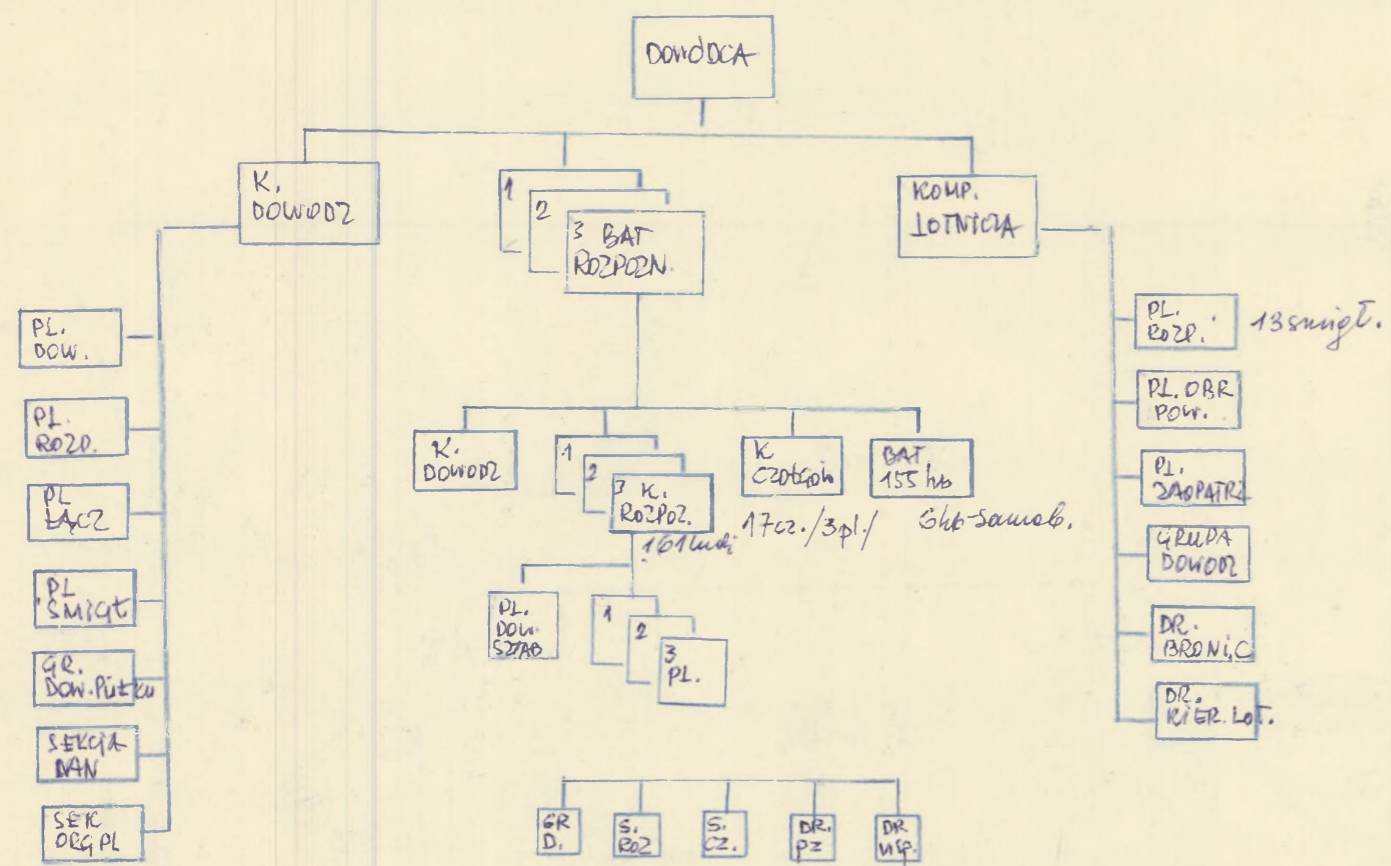 DOWÓDCA
K.
DOWODZ
1
2
3 BAT
ROZPOZN.
KOMP.
LOTNICZA
PL.
DOW.
PL.
ROZP.
PL
ŁĄCZ
PL
ŚMIGŁ
GR.
DOW. PUŁKU
SEKCJA
DAN
SEK
ORG PL
K.
DOWODZ
1
2
3 K.
ROZPOZ.
161 ludzi
K
CZOŁGÓW
17cz./3pl/
BAT.
155 hb
6hb-samob.
PL.
DOW.
SZTAB
1
2
3
PL.
GR
D.
S.
ROZ
S.
CZ.
DR.
PZ
DR
WSP.
PL.
ROZP. 13 śmigł.
PL. OBR
POW.
PL.
ZAOPATRZ
GRUPA
DOWODZ
DR.
BRONI,C
DR.
KIER. LOT.